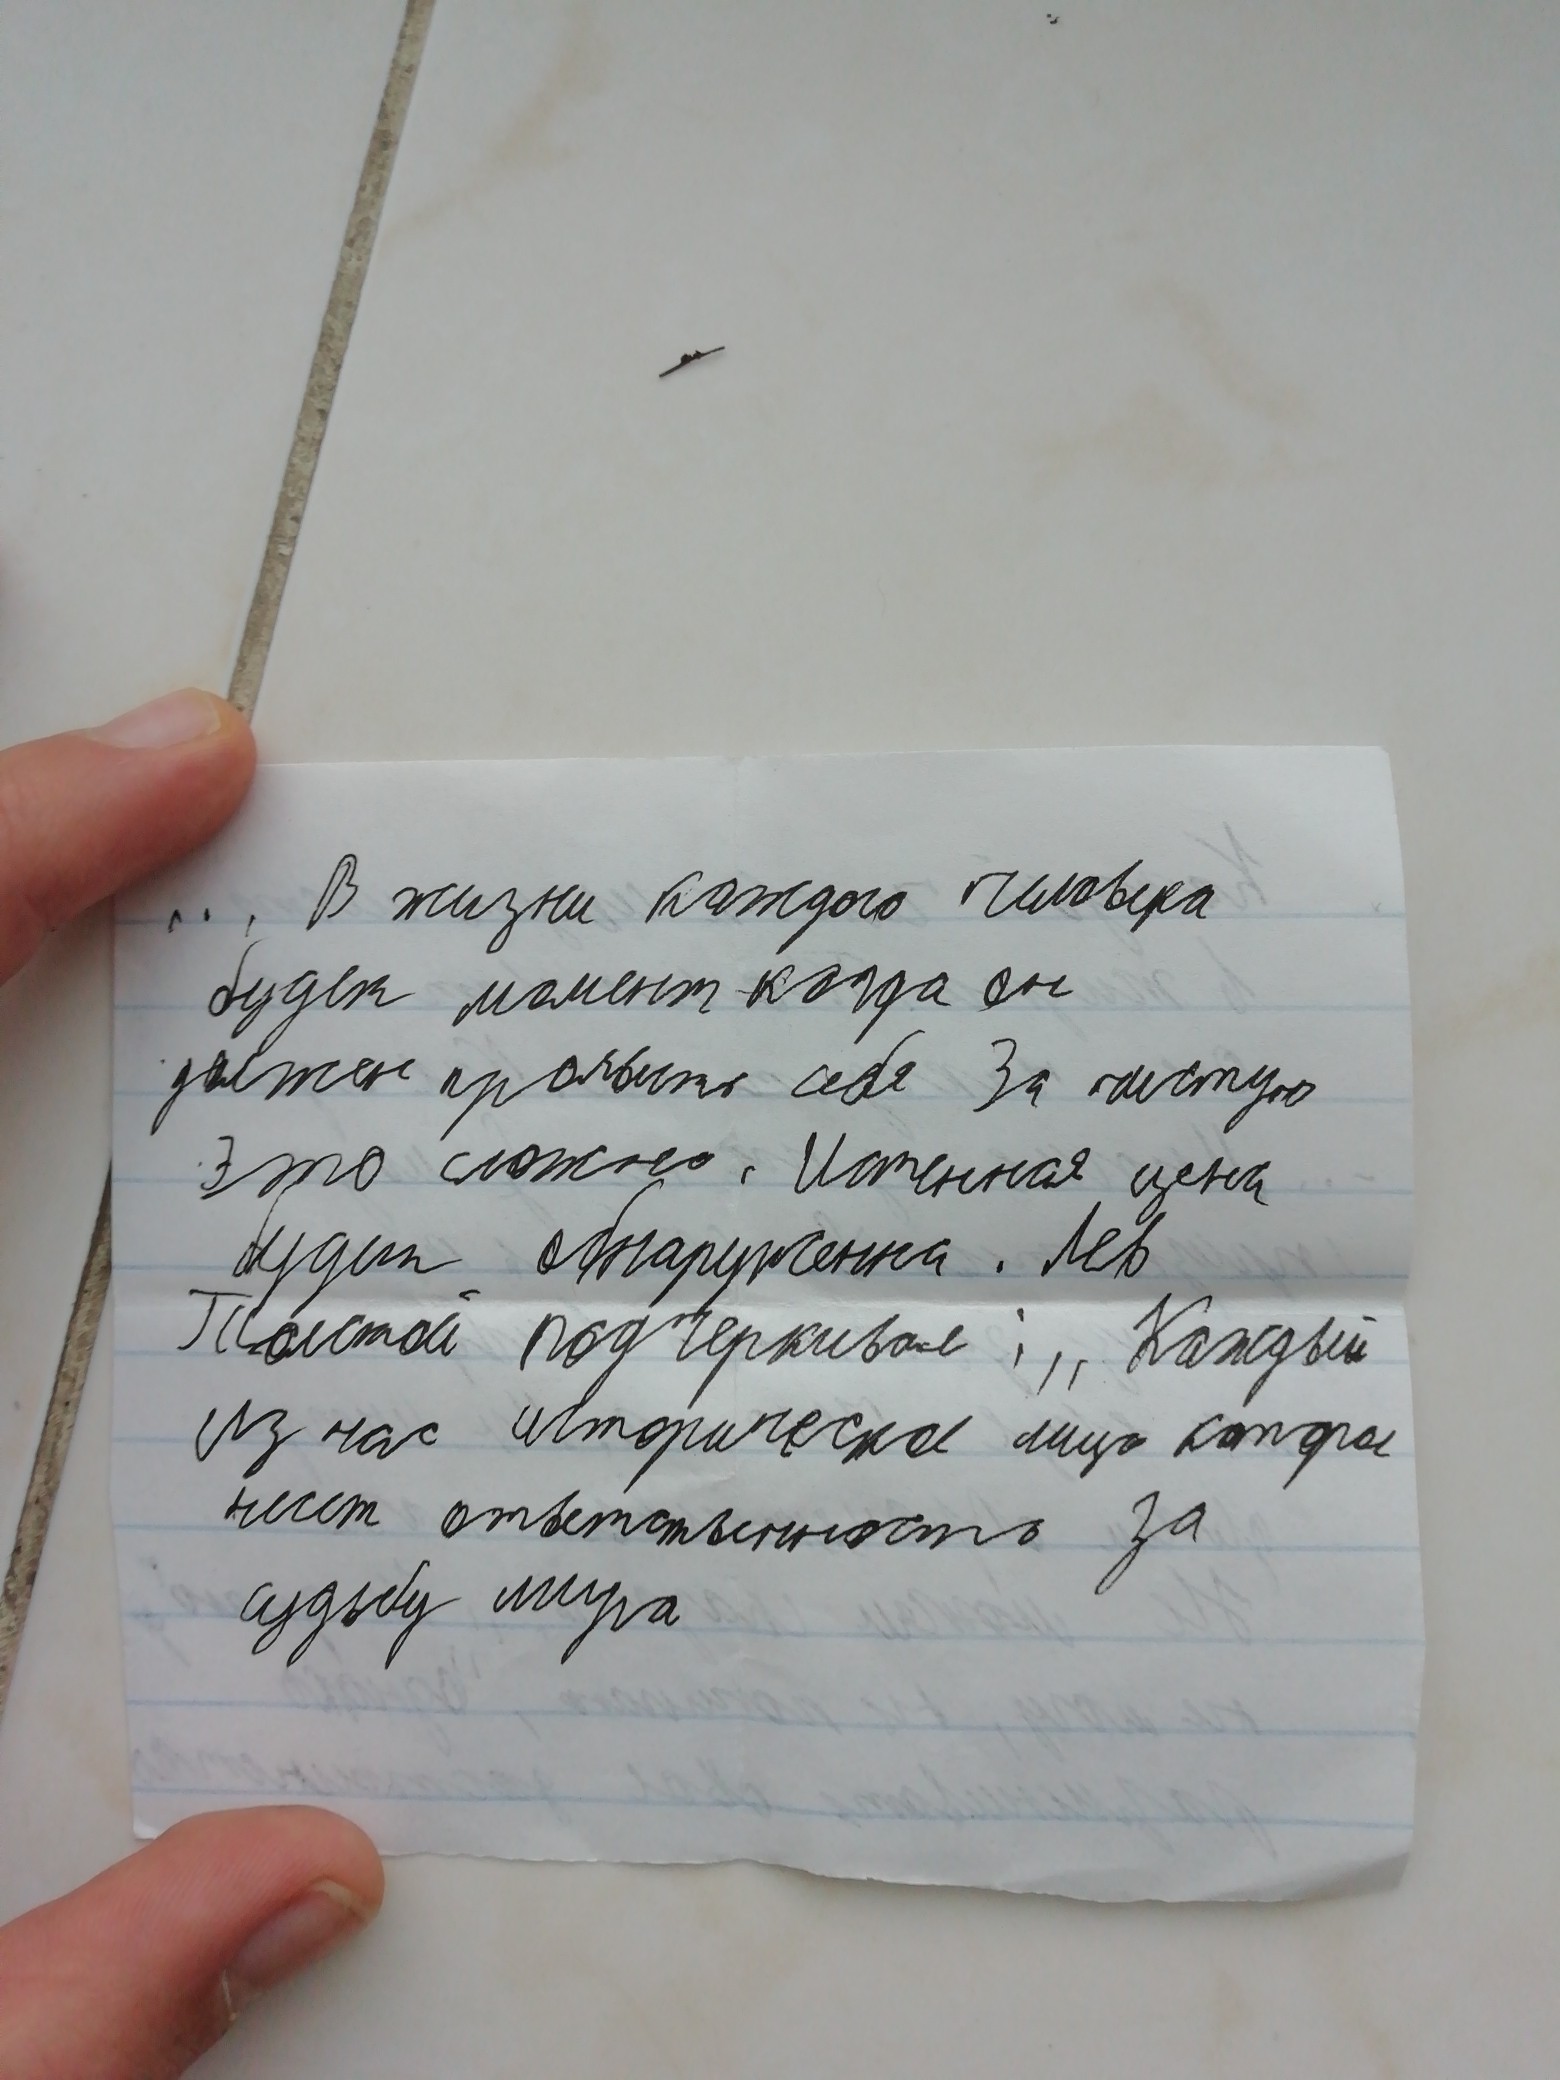 ... В жизни каждого человека
будет момент когда он
должен проявить себя За частую
Это сложно. Истенная цена
будет обнаруженна. Лев
Толстой подчеркивал: ,, Каждый
Из нас историческое лицо которое
несет ответственность за
судьбу мира